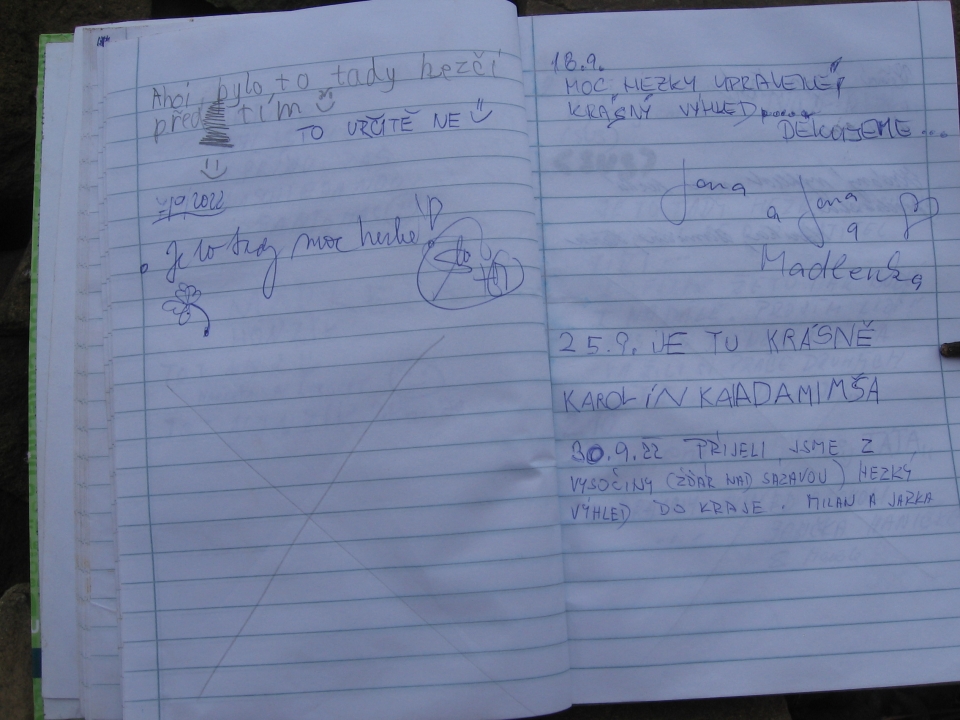 Ahoj, bylo, to tady hezčí
před tím
TO URČITĚ NE
1.10.2022
Je to tady moc hezké
18.9.
MOC HEZKY UPRAVENÉ
KRÁSNÝ VÝHLED
DĚKUJEME...
Jana
a Jana
a
Madlenka
25.9. JE TU KRÁSNĚ
KAROLÍNKA ADAM I MŠA
30.9.22 PŘIJELI JSME Z
VYSOČINY (ŽĎÁR NAD SÁZAVOU) HEZKÝ
VÝHLED DO KRAJE. MILAN A JARKA